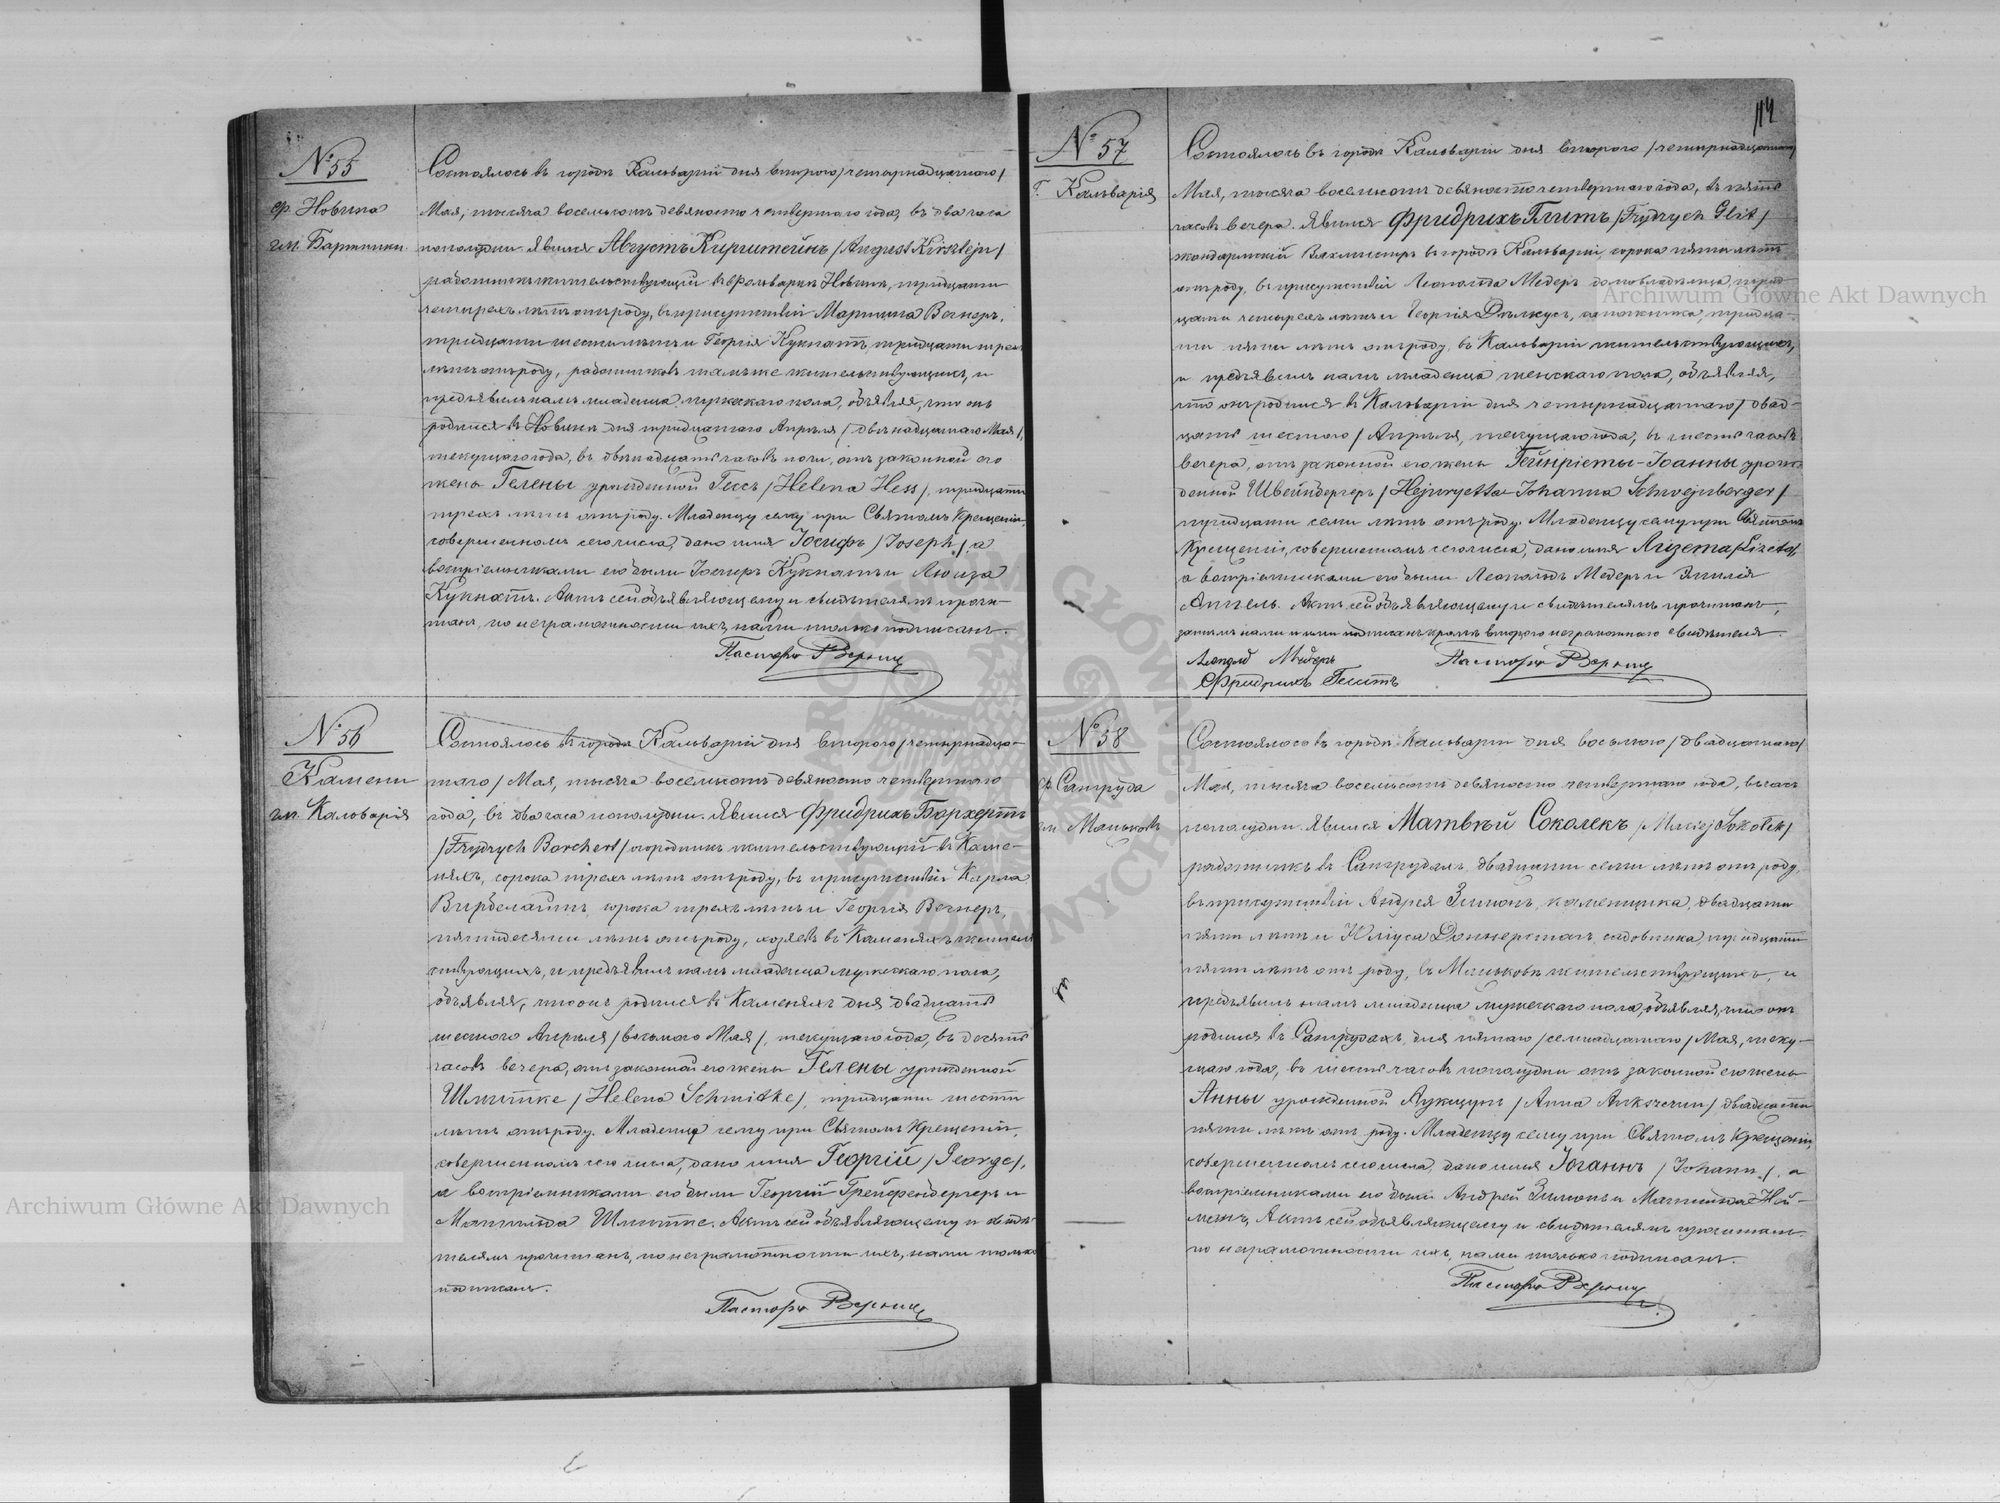 № 55
ф. Новина
гм. Бартники.
Состоялось въ городѣ Кальваріи дня втораго /четырнадцатаго/
Мая, тысяча восемьсотъ девяносто четвертаго года, въ два часа
пополудни. Явился Августъ Кирштейнъ /August Kirsztejn/
работникъ жительствующій въ Фольваркѣ Новинѣ, тридцати
четырехъ лѣтъ отъ роду, въ присутствіи Мартина Вегнеръ,
тридцати шести лѣтъ и Георгія Кукнатъ, тридцати трехъ
лѣтъ отъ роду, работниковъ тамъ же жительствующихъ, и
предъявилъ намъ младенца мужескаго пола, объявляя, что онъ
родился въ Новинѣ дня тридцатаго Апрѣля /двѣнадцатаго Мая/,
текущаго года, въ двѣнадцать часовъ ночи, отъ законной его
жены Гелены урожденной Гессъ /Helena Hess/, тридцати
трехъ лѣтъ отъ роду. Младенцу сему при Святомъ Крещеніи,
совершенномъ сего числа, дано имя Іосифъ /Joseph/, а
воспріемниками его были Кукнатъ и Луиза
Кукнатъ. Актъ сей объявляющему и свидѣтелямъ прочи-
танъ, по неграмотности ихъ, нами только подписанъ.
Пасторъ
№ 56
Камени
гм. Кальварія
Состоялось въ городѣ Кальваріи дня втораго /четырнадца-
таго/ Мая, тысяча восемьсотъ девяносто четвертаго
года, въ два часа пополудни. Явился Фридрихъ Борхертъ
/Frydrych Borchert/ огородникъ жительствующій въ Каме-
няхъ, сорока трехъ лѣтъ отъ роду, въ присутствіи Карла
Вирбелайтъ, сорока трехъ лѣтъ и Георгія Вегнеръ,
пятидесяти лѣтъ отъ роду, хозяевъ въ Каменяхъ жительс
ствующихъ, и предъявилъ намъ младенца мужескаго пола,
объявляя, что онъ родился въ Каменяхъ дня двадцать
шестого Апрѣля /восьмаго Мая/, текущаго года, въ десять
часовъ вечера, отъ законной его жены Гелены урожденной
Шмитке /Helena Schmidke/, тридцати шести
лѣтъ отъ роду. Младенцу сему при Святомъ Крещеніи,
совершенномъ сего числа, дано имя Георгій /George/,
а воспріемниками его были Георгій Грейфенбергеръ и
Матильда Шмитке. Актъ сей объявляющему и свидѣ-
телямъ прочитанъ, по неграмотности ихъ, нами только
подписанъ.
Пасторъ
114
№ 57
г. Кальварія
Состоялось въ городѣ Кальваріи дня втораго /четырнадцатаго/
Мая, тысяча восемьсотъ девяносто четвертаго года, въ пять
часовъ вечера. Явился Фридрихъ Глитъ /Frydrych Glit/
жандармскій Вахмистръ въ городѣ Кальваріи, сорока пяти лѣтъ
отъ роду, въ присутствіи Леопольда Медеръ домовладѣльца, трид-
цати четырехъ лѣтъ и Георгія сапожника, тридца-
ти пяти лѣтъ отъ роду, въ Кальваріи жительствующихъ,
и предъявилъ намъ младенца женскаго пола, объявляя,
что онъ родился въ Кальваріи дня четырнадцатаго /двад-
цать шестого/ Апрѣля, текущаго года, въ шесть часовъ
вечера, отъ законной его жены Гейнріеты-Іоанны урож-
денной Швейнбергеръ /Hejnryetta-Johanna Schwejnberger/
тридцати семи лѣтъ отъ роду. Младенцу сему при Святомъ
Крещеніи, совершенномъ сего числа, дано имя Лизета /Lizeta/,
а воспріемниками его были Леопольдъ Медеръ и Эмилія
Аппель. Актъ сей объявляющему и свидѣтелямъ прочитанъ,
затѣмъ нами и ими подписанъ кромѣ второго неграмотнаго свидѣтеля.
Леопольд Медеръ
Пасторъ
Фридрихъ Глитъ
№ 58
ф. Сангруда
гм. Маньковъ
Состоялось въ городѣ Кальваріи дня восьмаго /двадцатаго/
Мая, тысяча восемьсотъ девяносто четвертаго года, въ часъ
пополудни. Явился Матвѣй Соколекъ /Maciej Sokołek/
работникъ въ Сангрудахъ, двадцати семи лѣтъ отъ роду,
въ присутствіи Андрея Зимонъ, каменщика, двадцати
пяти лѣтъ и Юліуса Доннерсталъ, садовника, тридцати
пяти лѣтъ отъ роду, въ Маньковѣ жительствующихъ, и
предъявилъ намъ младенца мужескаго пола, объявляя, что онъ
родился въ Сангрудахъ, дня пятаго /семнадцатаго/ Мая, теку-
щаго года, въ шесть часовъ пополудни отъ законной его жены
Анны урожденной Лукщунъ /Anna / двадцати
пяти лѣтъ отъ роду. Младенцу сему при Святомъ Крещеніи,
совершенномъ сего числа, дано имя Іоганнъ /Johann/, а
воспріемниками его были Андрей Зимонъ и Матильда Ней-
манъ. Актъ сей объявляющему и свидѣтелямъ прочитанъ
по неграмотности ихъ, нами только подписанъ.
Пасторъ
Archiwum Główne Akt Dawnych
Archiwum Główne Akt Dawnych